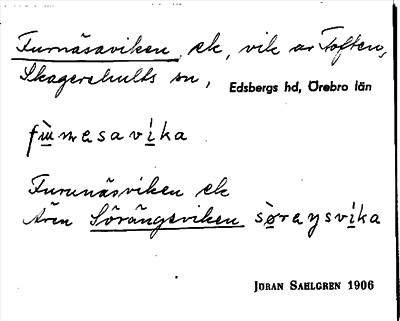 Furnäsaviken, ek, vik av Toften,
Skagershults sn, Edsbergs hd, Örebro län
fɯ̱nɐsavi̱ka
Furunäsviken ek
Även Sörängsviken sø̱rɐŋsvi̱ka
JÖRAN SAHLGREN 1906